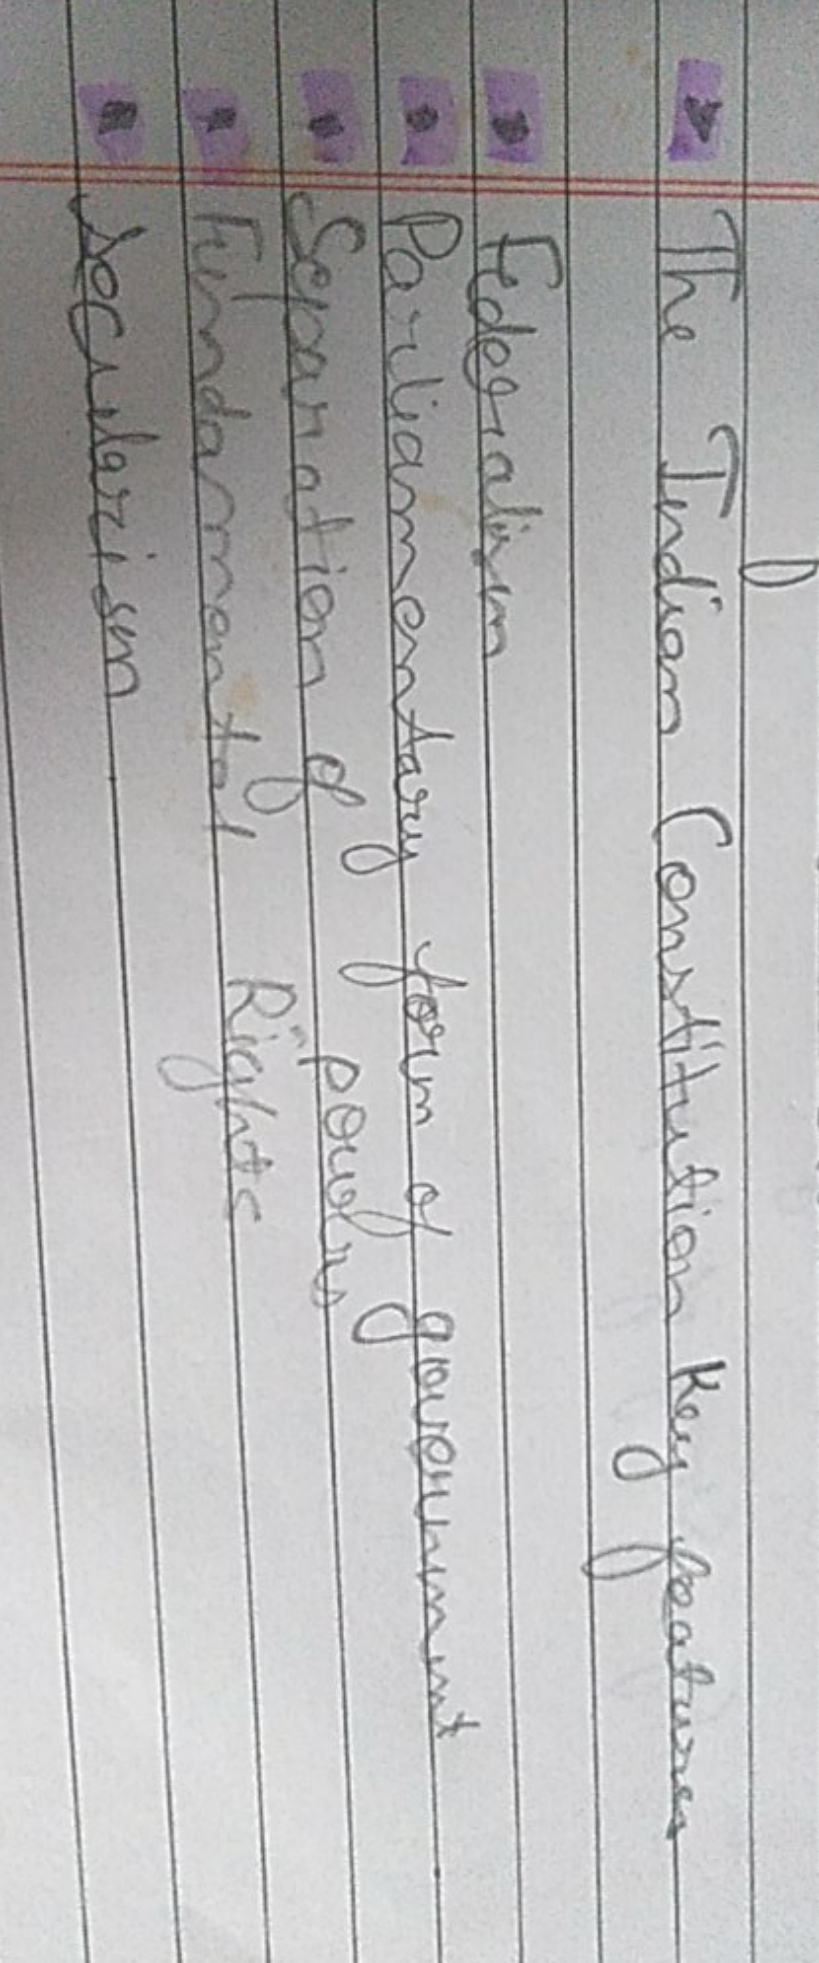 The Indian Constitution Key features
Federalism
Parliamentary form of government
Separation of powers
Fundamental Rights
Secularism